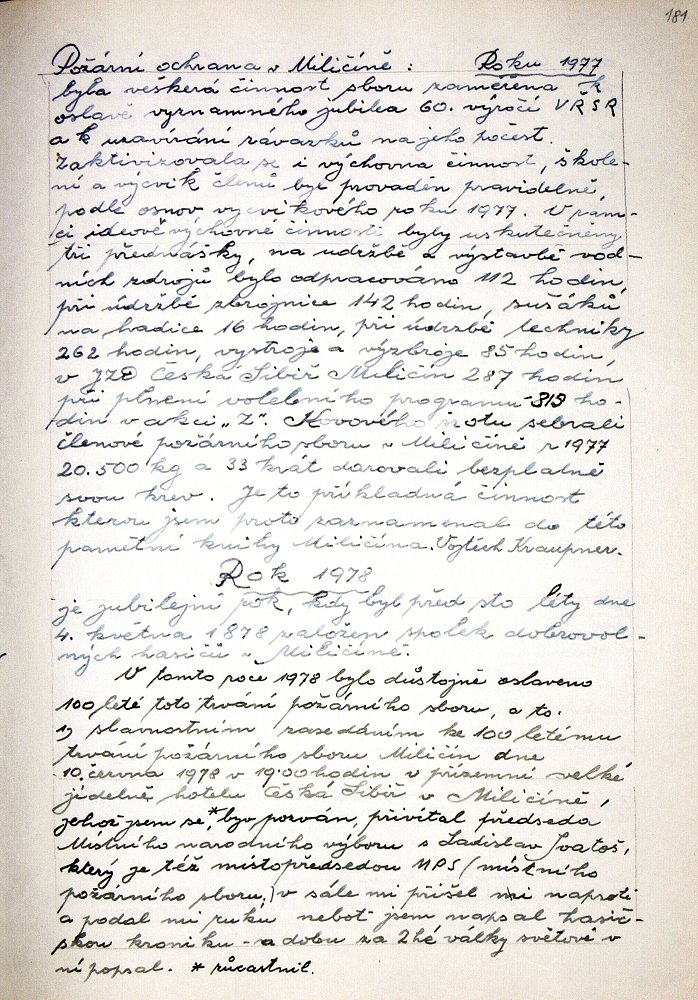 181
Požární ochrana v Miličíně : Roku 1977
byla veškerá činnost sboru zaměřena k
oslavě významného jubilea 60. výročí VŘSR
a k uzavírání závazků na jeho počest.
Zaktivizovala se i výchovna činnost, škole-
ní a výcvik členů byl prováděn pravidelně,
podle osnov výcvikového roku 1977. V rám-
ci ideově výchovné činnosti byly uskutečněny
tři přednášky, na udržbě a výstavbě vod-
ních zdrojů bylo odpracováno 112 hodin,
při údržbě zbrojnice 142 hodin, sušáků
na hadice 16 hodin, při údržbě techniky
262 hodin, vystroje a výzbroje 85 hodin,
v JZD Česká Sibiř Miličín 287 hodin
při plnění volebního programu - 313 ho-
din v akci „Z". Kovového šrotu sebrali
členové požárního sboru v Miličíně r 1977
20.500 kg a 33 krát darovali bezplatně
svou krev. Je to příkladná činnost
kterou jsem proto zaznamenal do této
pamětní knihy Miličína. Vojtěch Kraupner.
Rok 1978
je jubilejní rok, kdy byl před sto léty dne
4. května 1878 založen spolek dobrovol-
ných hasičů v Miličíně.
V tomto roce 1978 bylo důstojně oslaveno
100 leté toto trvání požárního sboru, a to.
1) slavnostním zasedáním ke 100 letému
trvání požárního sboru Miličín dne
10. června 1978 v 19'00 hodin v přízemní velké
jídelně, hotelu Česká Sibiř v Miličíně,
jehož jsem se,* byv pozván, přivítal předseda
Místního národního výboru s Ladislav Ivatoš,
který je též místopředsedou MPS (místního
požárního sboru,) v sále mi přišel naproti
a podal mi ruku neboť jsem napsal hasič-
skou kroniku - a dobu za 2hé války světové v
ní popsal. * zůcastnil.